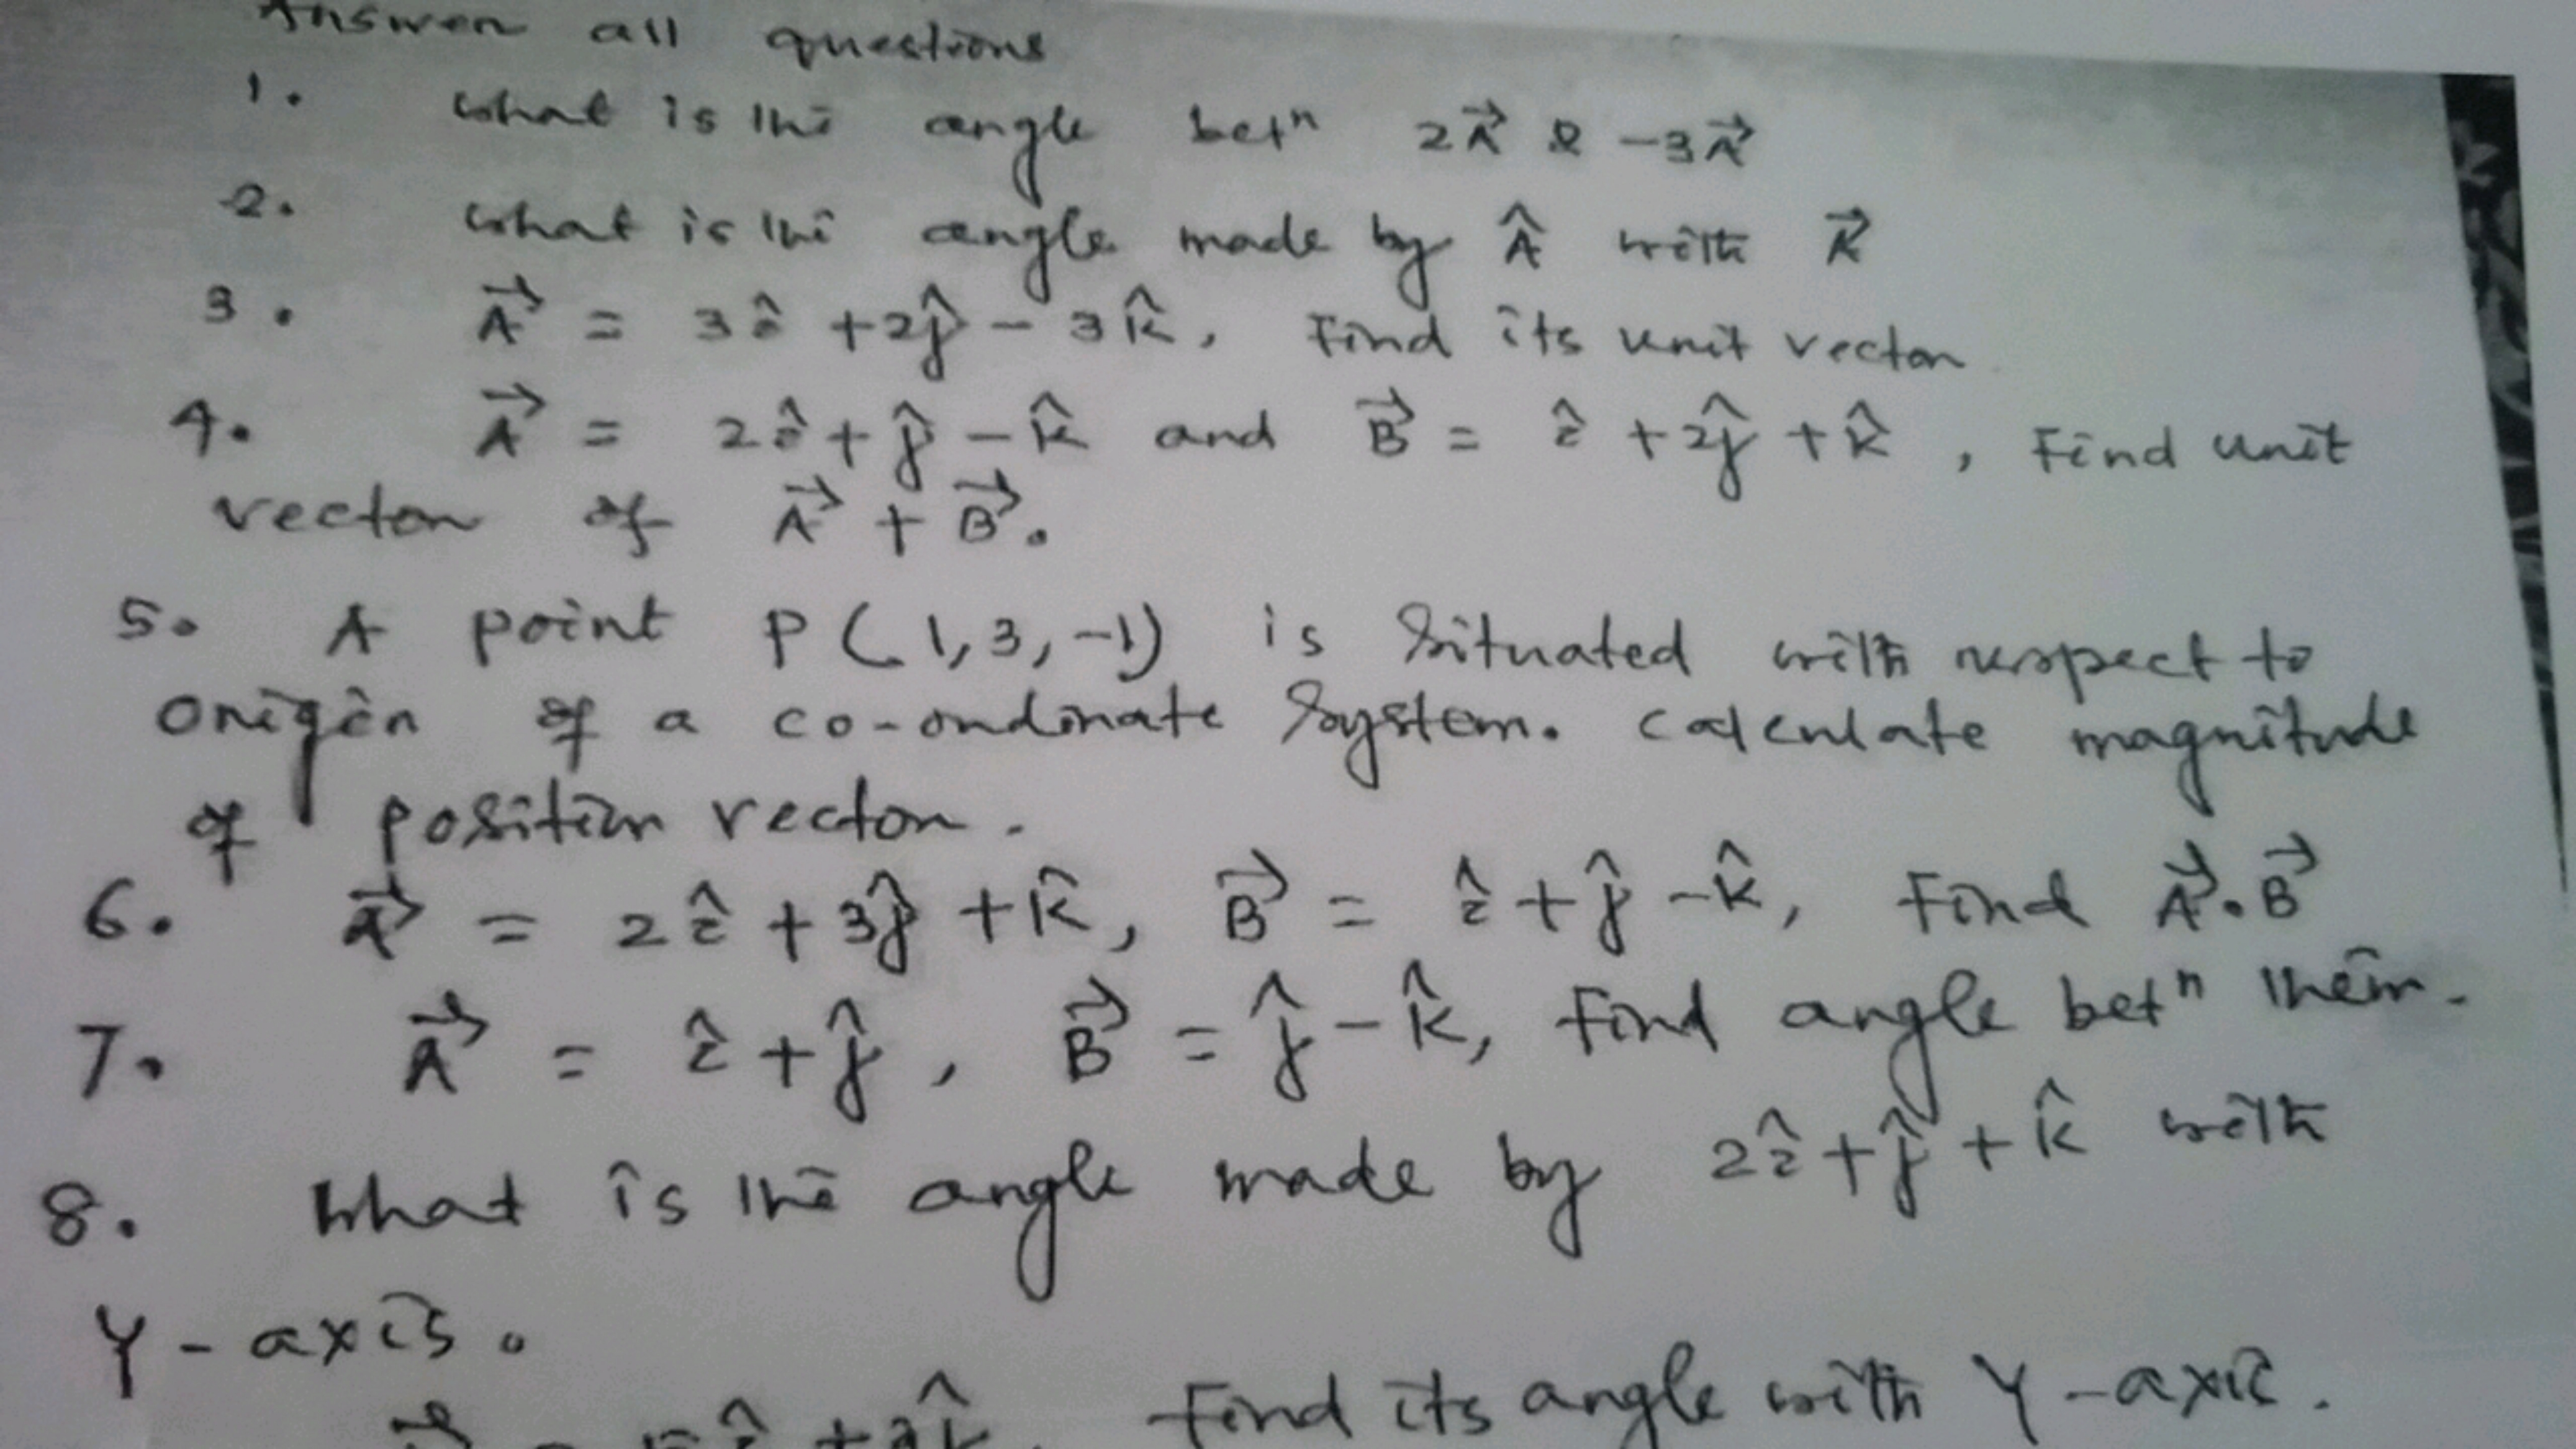 Answer all questions
1. What is the angle betⁿ 2A⃗ & -3A⃗
2. What is the angle made by Â with A⃗
3. A⃗ = 3î + 2ĵ - 3k̂, Find its unit vector
4. A⃗ = 2î + ĵ - k̂ and B⃗ = î + 2ĵ + k̂, Find unit
vector of A⃗ + B⃗.
5. A point P(1,3,-1) is situated with respect to
origin of a co-ordinate system. Calculate magnitude
of position vector.
6. A⃗ = 2î + 3ĵ + k̂, B⃗ = î + ĵ - k̂, Find A⃗.B⃗
7. A⃗ = î + ĵ, B⃗ = ĵ - k̂, Find angle betⁿ them.
8. What is the angle made by 2î + ĵ + k̂ with
Y-axis.
Find its angle with Y-axis.